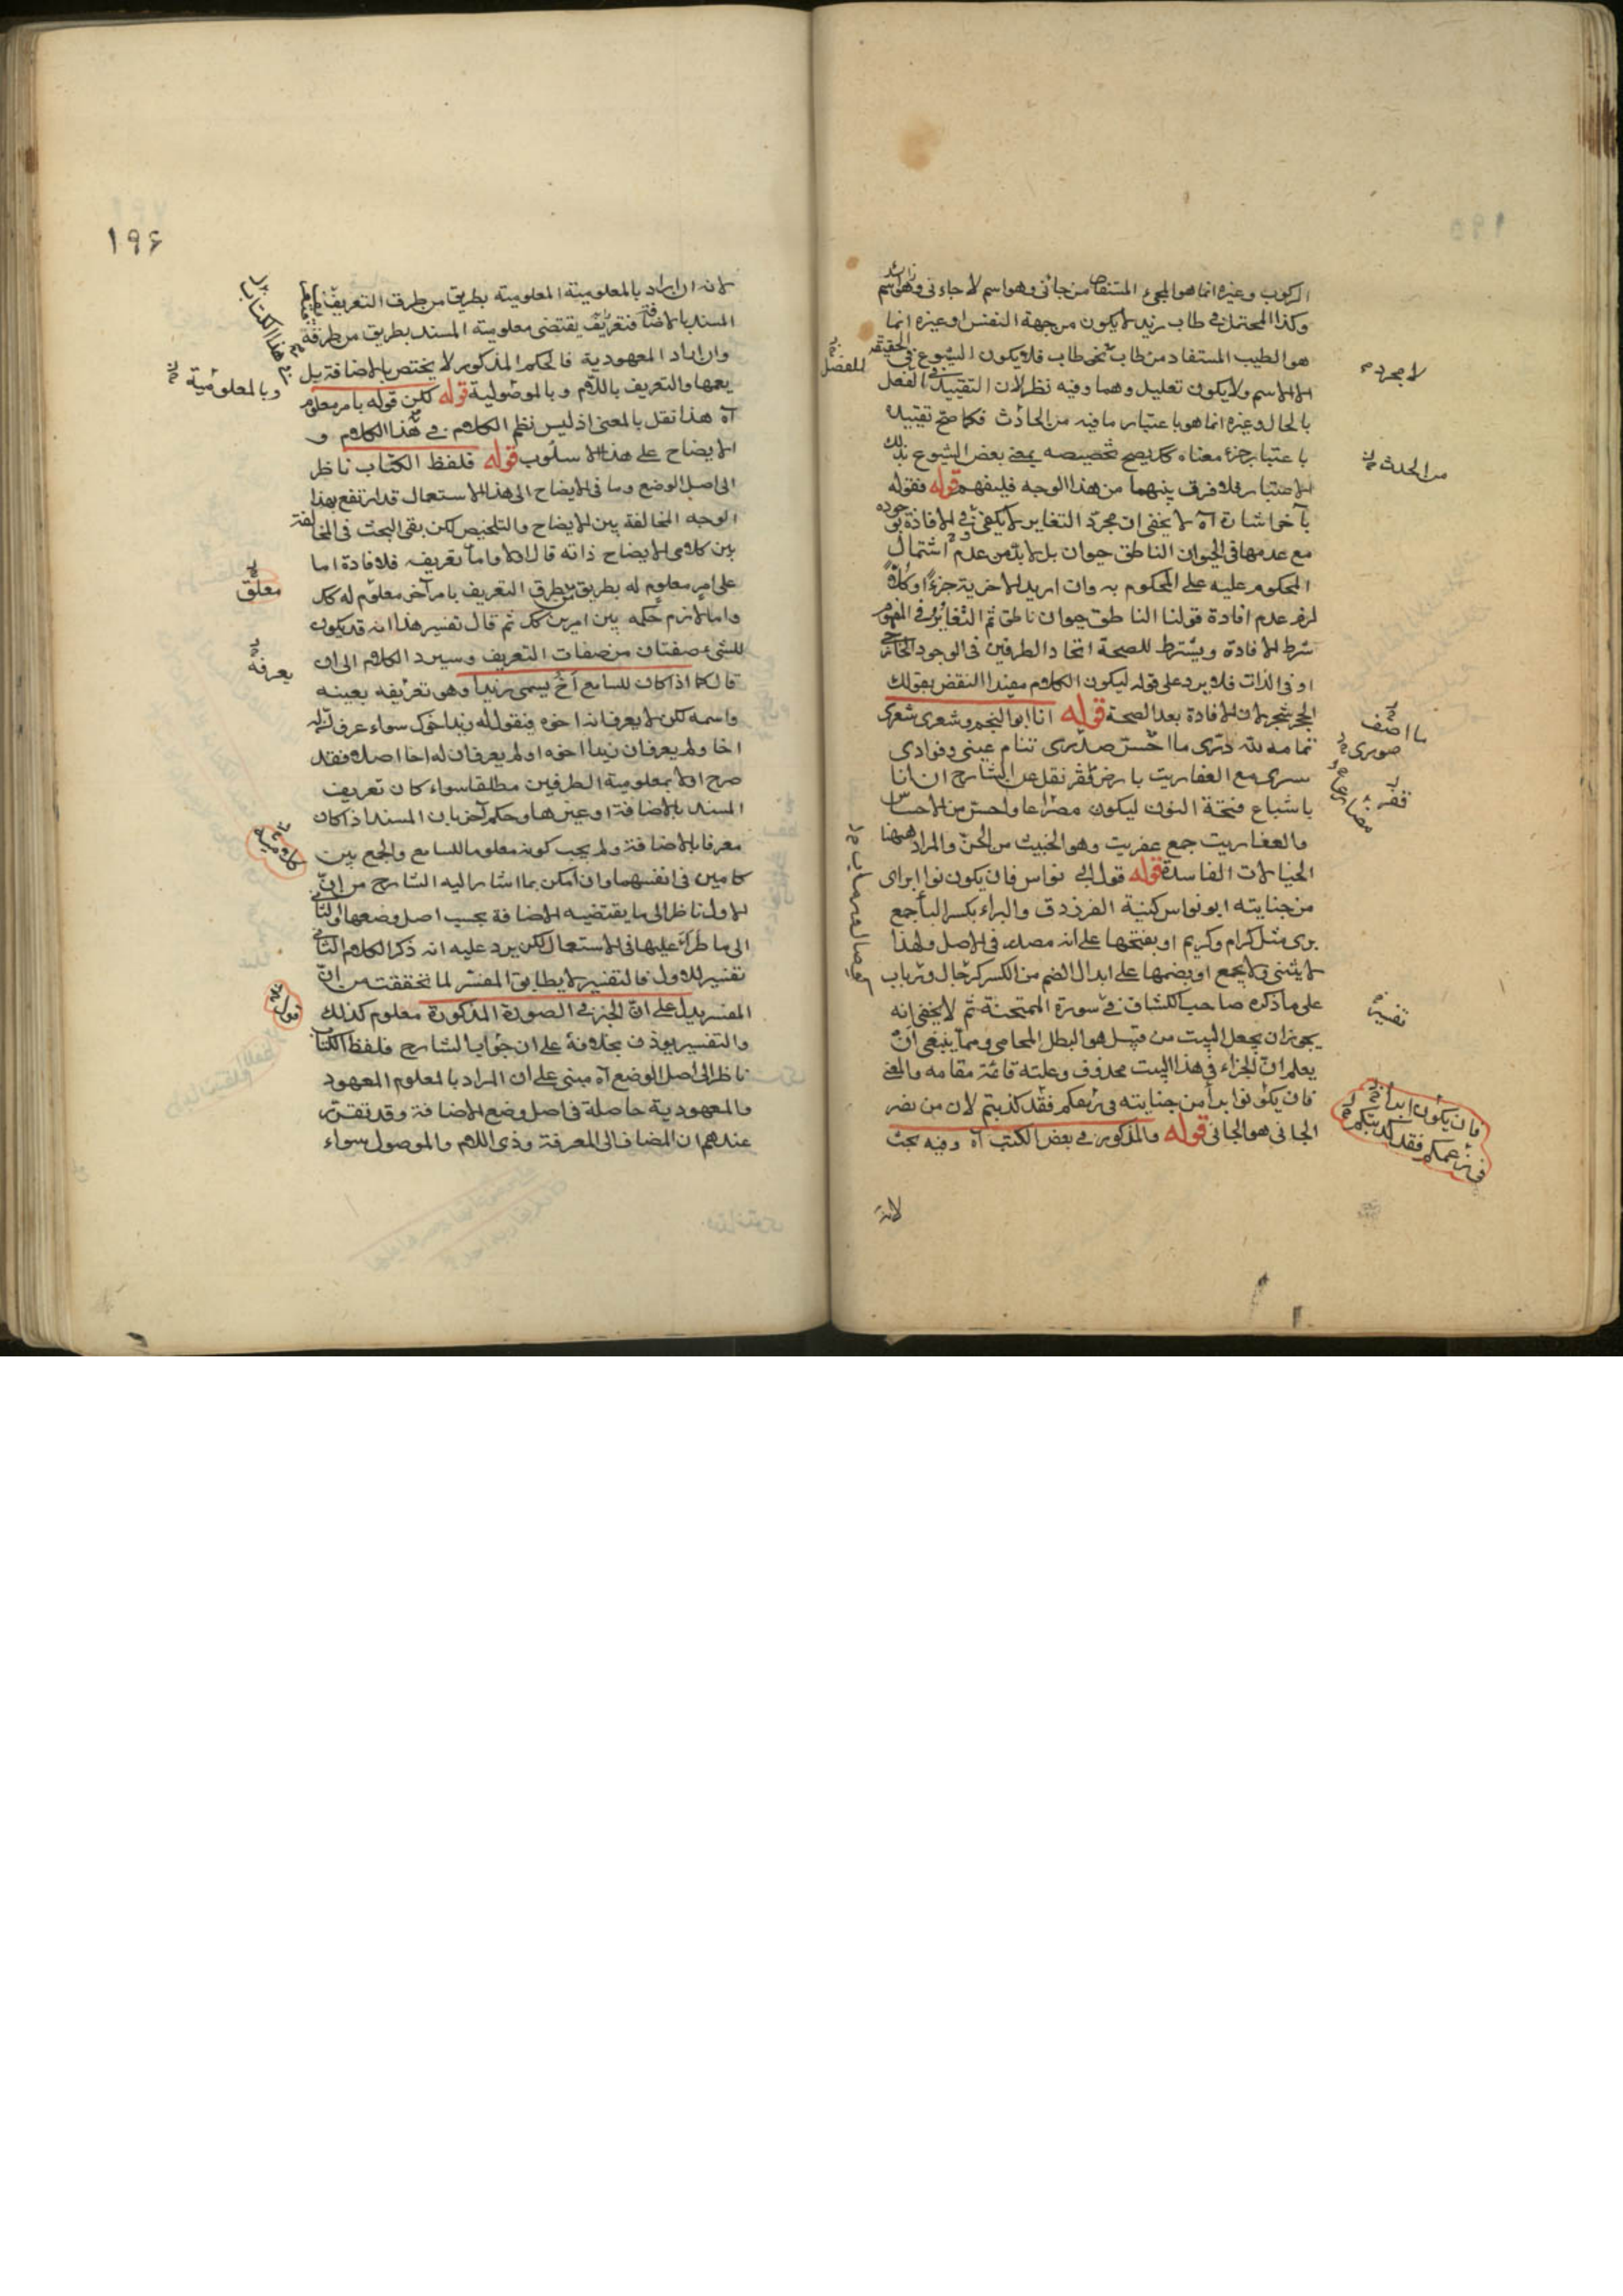 الركوب وغيره انما هو المجئ المستفاد من جائى وهو اسم لا جاءنى وهو اسم
وكذا المحتمل فى طاب زيد لا يكون من جهة النفس او غيره انما
هو الطيب المستفاد من طاب نحى طاب فلا يكون الشيوع فى الحقيقة
الا للاسم ولا يكون تعليل وهما وفيه نظر لان التقييد فى الفعل
بالحال وغيره انما هو باعتبار ما فيه من الحادث فكما صح تقييده
باعتبار جزء معناه كذا يصح تخصيصه بمعنى بعض الشيوع بذلك
الاعتبار فلا فرق بينهما من هذا الوجه فليفهم قوله فقوله
بآخر اشارة آه لا يخفى ان مجرد التغاير لا يكفى فى الافادة لوجوده
مع عدمها فى الحيوان الناطق حيوان بل لابد من عدم اشتمال
المحكوم عليه على المحكوم به وان اريد الاخرية جزءا او كلا
لزم عدم افادة قولنا الناطق حيوان ناطق ثم التغاير فى المفهوم
شرط الافادة ويشترط للصحة اتحاد الطرفين فى الوجود الخارجى
او فى الذات فلا يرد على قوله ليكون الكلام مفيدا النقض بقولك
الحجر شجر لان الافادة بعد الصحة قوله انا ابو النجم وشعرى شعرى
تمامه لله درى ما احسن صدرى تنام عينى وفوادى
سرى مع العفاريت بارض قفر نقل عن الشارح ان انا
باشباع فتحة النون ليكون مصراعا واحسن من الاحساس
والعفاريت جمع عفريت وهو الخبيث من الجن والمراد ههنا
الخيالات الفاسدة قوله قول ابى نواس فان يكون نوا ابراى
من جنايته ابو نواس كنية الفرزدق والبراء بكسر البا جمع
برى مثل كرام وكريم او بفتحها على انه مصدر فى الاصل ولهذا
لا يثنى ولا يجمع او بضمها على ابدال الضم من الكسر كرخال ورباب
على ما ذكره صاحب الكشاف فى سورة الممتحنة ثم لا يخفى انه
يجوز ان يجعل البيت من قبيل هو البطل المحامى ومما ينبغى ان
يعلم ان الجزاء فى هذا البيت محذوف وعلته قائمة مقامه والمعنى
فان يكونوا برأ من جنايته فى زعمكم فقد كذبتم لان من نصر
الجانى هو الجانى قوله والمذكور فى بعض الكتب آه وفيه بحث
لانه
لا مجرد
للفصل
من الحدث
ما اضف
صورى
قفر
مصراعا
تفسير
فان يكون ابدا
فى زعمكم فقد كذبتكم
١٩۶
لانه ان اراد بالمعلومية المعلومية بطريق من طرق التعريف
المسند بالاضافة فتعريف يقتضى معلومية المسند بطريق من طرقه
وان اراد المعهودية فالحكم المذكور لا يختص بالاضافة بل
يعمها والتعريف باللام وبالموصولية قوله لكن قوله بامر معلوم
آه هذا نقل بالمعنى اذ ليس نظم الكلام فى هذا الكلام و
الايضاح على هذا الاسلوب قوله فلفظ الكتاب ناظر
الى اصل الوضع وما فى الايضاح الى هذا الاستعمال قد ارتفع بهذا
الوجه المخالفة بين الايضاح والتلخيص لكن بقى البحث فى المخالفة
بين كلامى الايضاح ذاته قال اولا واما تعريفه فلافادة اما
على امر معلوم له بطريق من طرق التعريف بامر آخر معلوم له كذلك
واما لازم حكمه بين امرين كذلك ثم قال تفسير هذا انه قد يكون
للشئ صفتان من صفات التعريف وسيرد الكلام الى ان
قال كما اذا كان للسامع اخ يسمى زيدا وهو تعريفه بعينه
واسمه لكن لا يعرف انه اخوه فتقول له زيد اخوك سواء عرف ان له
اخا ولم يعرف ان زيدا اخوه او لم يعرف ان له اخا اصلا فقد
صرح اولا بمعلومية الطرفين مطلقا سواء كان تعريف
المسند بالاضافة او غيرها وحكم آخر بان المسند اذا كان
معرفا بالاضافة ولم يجب كونه معلوما للسامع والجمع بين
كلامين فى انفسهما وان امكن بما اشار اليه الشارح من ان
الاول ناظر الى ما يقتضيه الاضافة بحسب اصل وضعها والثانى
الى ما طرأ عليها فى الاستعمال لكن يرد عليه انه ذكر الكلام الثانى
تفسير للاول فالتفسير لا يطابق المفسر لما تحققت من ان
المفسر يدل على ان الجزء فى الصورة المذكورة معلوم كذلك
والتفسير يؤذن بخلافه على ان جواب الشارح فلفظ الكتاب
ناظر الى اصل الوضع آه مبنى على ان المراد بالمعلوم المعهود
والمعهودية حاصلة فى اصل وضع الاضافة وقد تقرر
عندهم ان المضاف الى المعرفة وذى اللام والموصول سواء
هذا الكتاب
وبالمعلومية
معلق
يعرفه
كلاميه
قوله